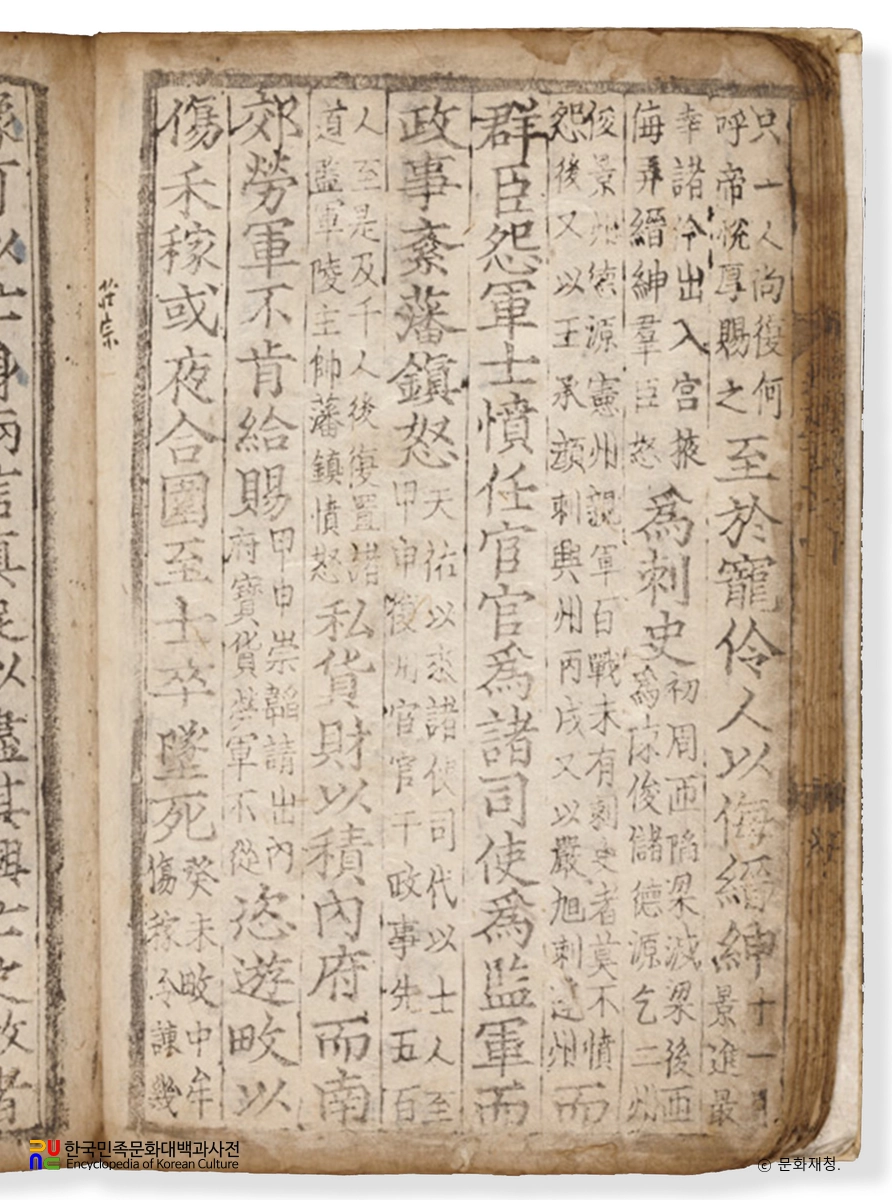 只一人尚復何
呼帝悅厚賜之
至於寵伶人以侮縉紳
十一月
景進最
幸諸伶出入宮掖
侮弄縉紳羣臣怒
爲刺史
初周匝陷梁滅梁後匝
爲陳俊儲德源乞二州
俊景州德源憲州親軍百戰未有刺史者莫不憤
怨後又以王承顔刺興州丙戌又以嚴旭刺州
而
群臣怨軍士憤任宦官爲諸司使爲監軍而
政事紊藩鎭怒
天祐以來諸使司代以士人至
甲申復用宦官干政事先五百
人至是及千人後復置諸
道監軍陵主帥藩鎭憤怒
私貨財以積內府而南
郊勞軍不肯給賜
甲申崇韜請出內
府寶貨勞軍不從
恣遊畋以
傷禾稼或夜合圍至士卒墜死
癸未畋中牟
傷稼令諫幾
莊宗
可以亡身兩言真足以盡其興亡之故者
한국민족문화대백과사전
Encyclopedia of Korean Culture
© 문화재청.